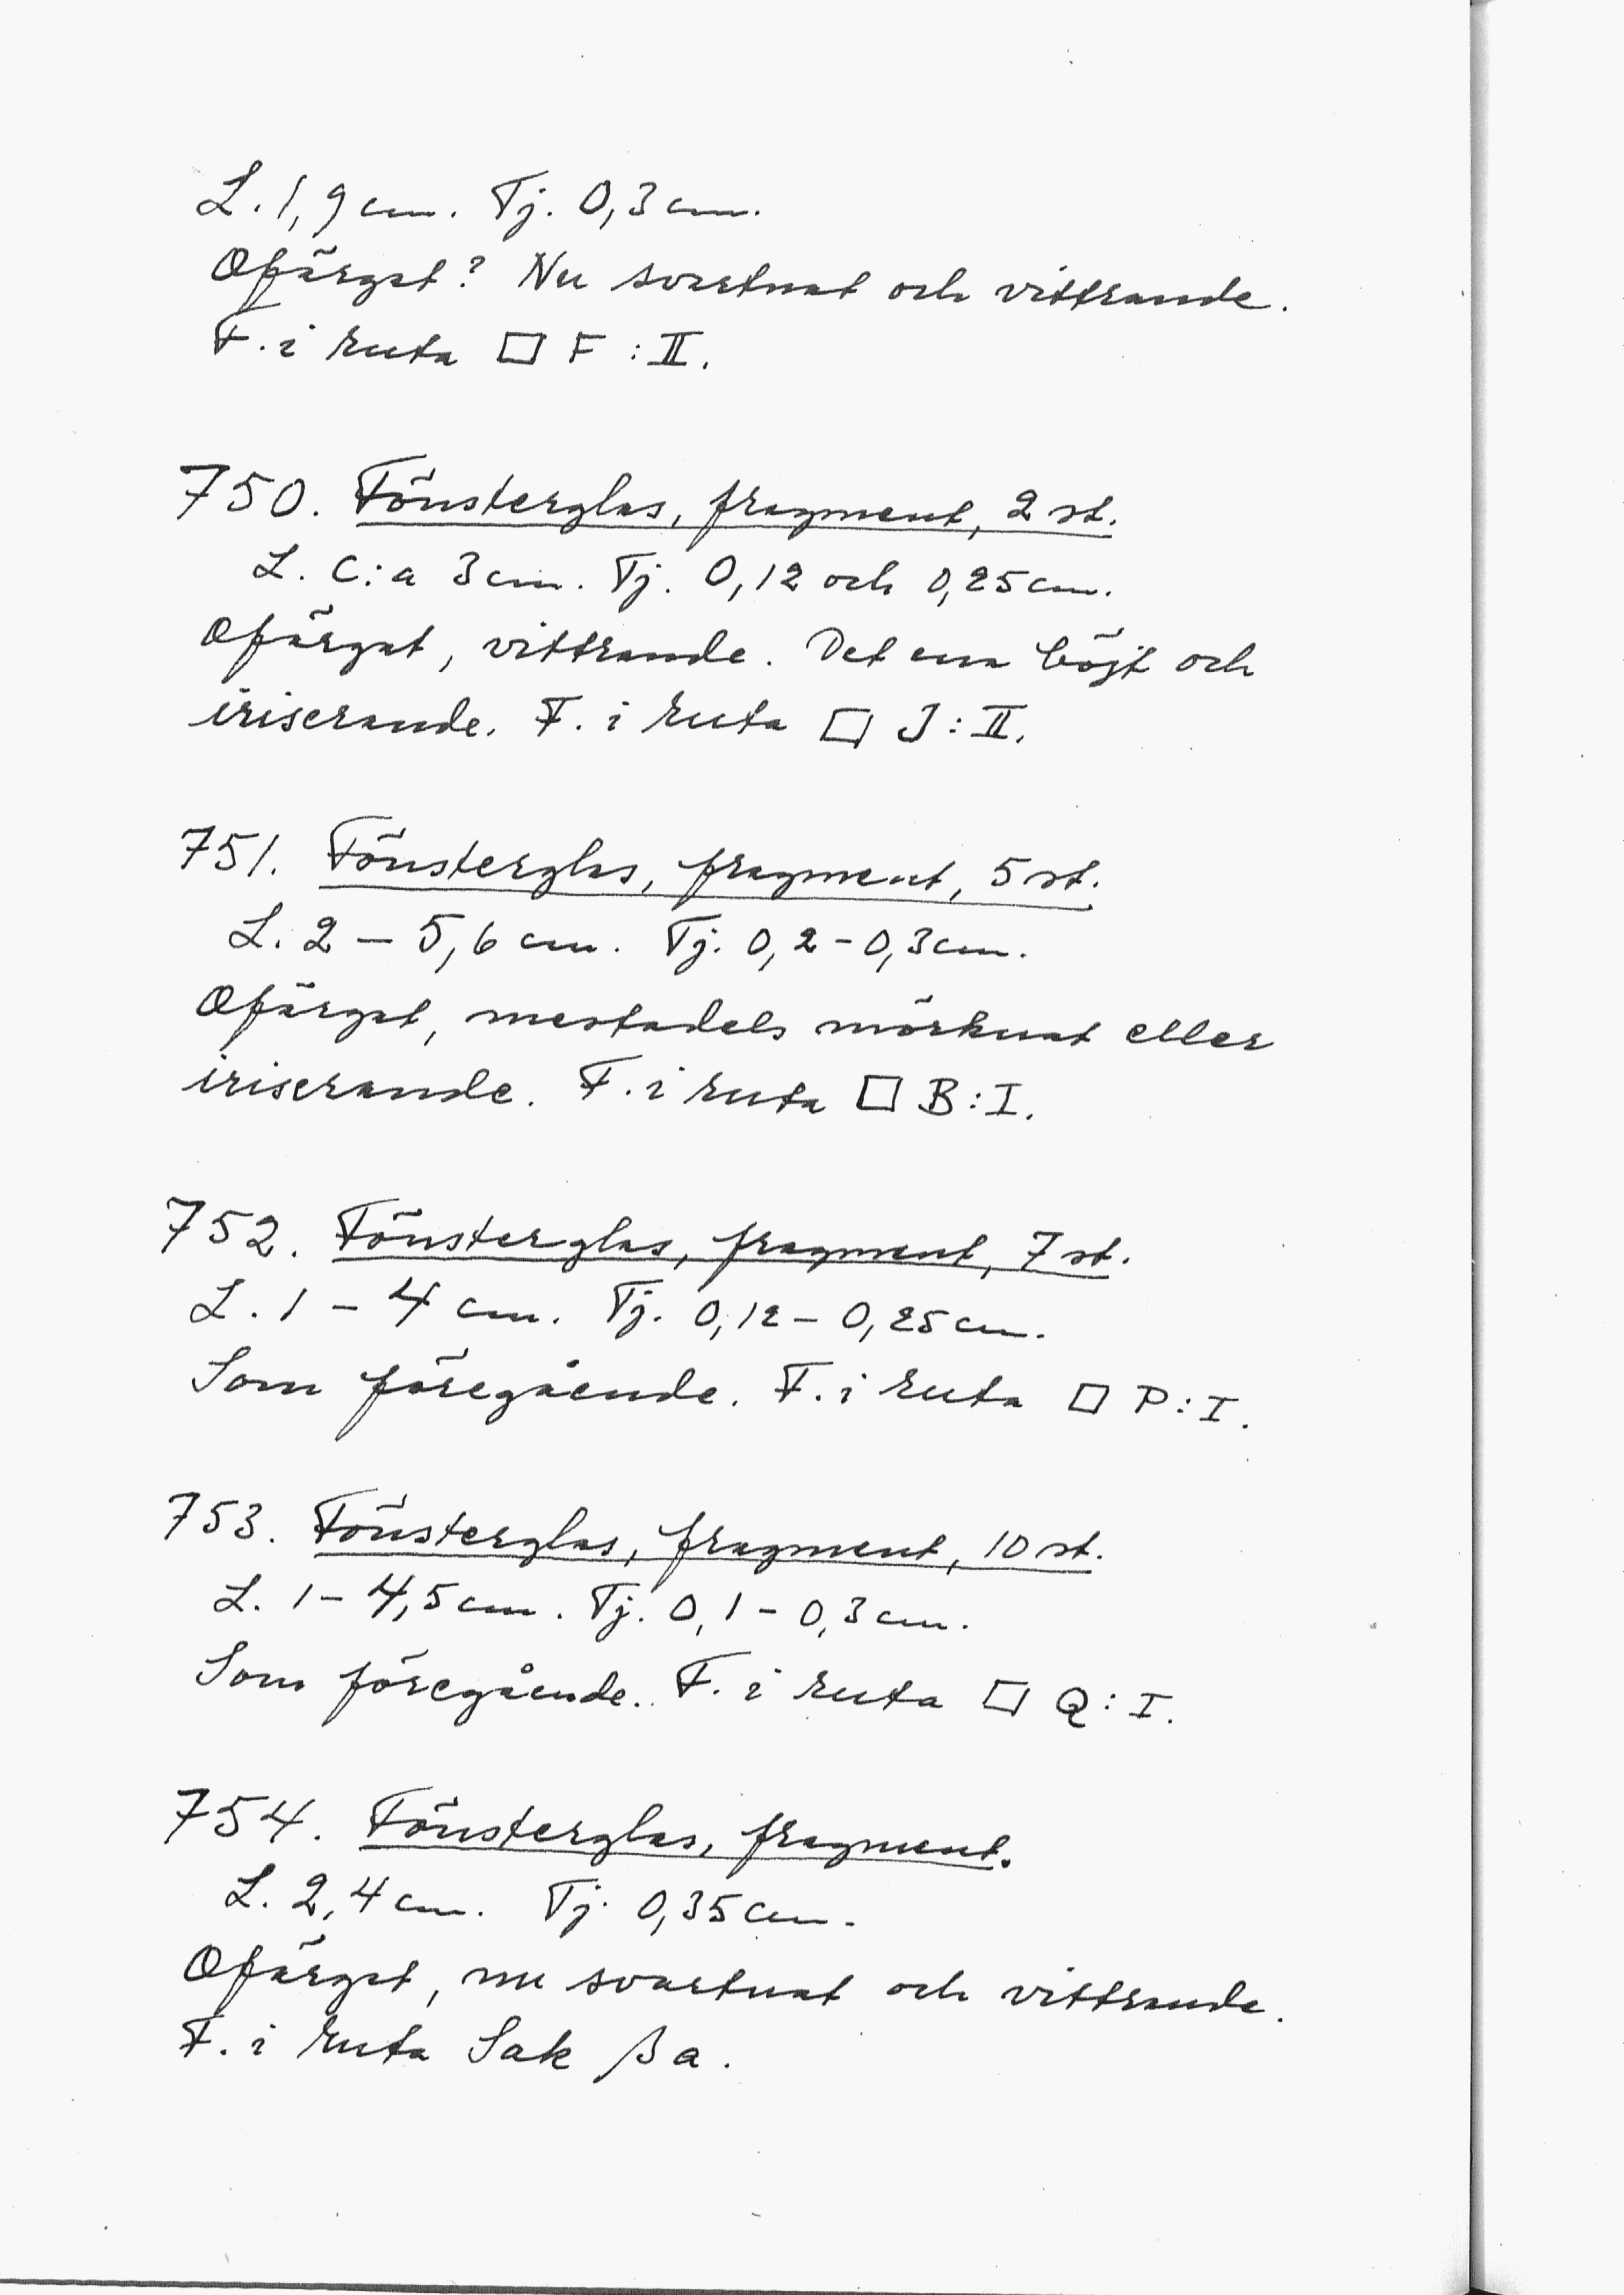 L. 1,9 cm. Tj. 0,3 cm.
Ofärgat? Nu svartnat och vittrande.
F. i ruta □ F : II.
750. Fönsterglas, fragment, 2 st.
L. C:a 3 cm. Tj. 0,12 och 0,25 cm.
Ofärgat, vittrande. Det ena böjt och
iriserande. F. i ruta □ J : II.
751. Fönsterglas, fragment, 5 st.
L. 2 – 5,6 cm. Tj. 0,2 – 0,3 cm.
Ofärgat, mestadels mörknat eller
iriserande. F. i ruta □ B : I.
752. Fönsterglas, fragment, 7 st.
L. 1 – 4 cm. Tj. 0,12 – 0,25 cm.
Som föregående. F. i ruta □ P : I.
753. Fönsterglas, fragment, 10 st.
L. 1 – 4,5 cm. Tj. 0,1 – 0,3 cm.
Som föregående. F. i ruta □ Q : I.
754. Fönsterglas, fragment.
L. 2,4 cm. Tj. 0,35 cm.
Ofärgat, nu svartnat och vittrande.
F. i ruta Sak β a.